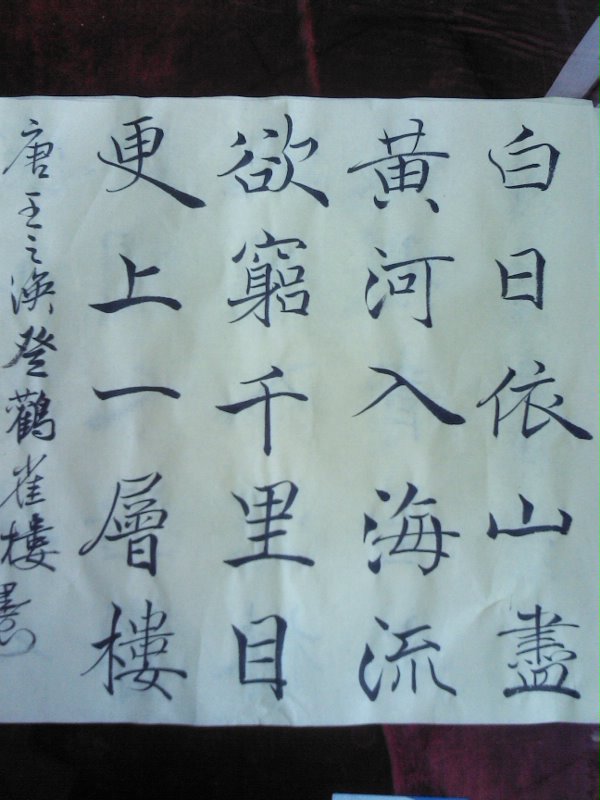 白日依山盡
黃河入海流
欲窮千里目
更上一層樓
唐王之渙登鸛雀樓